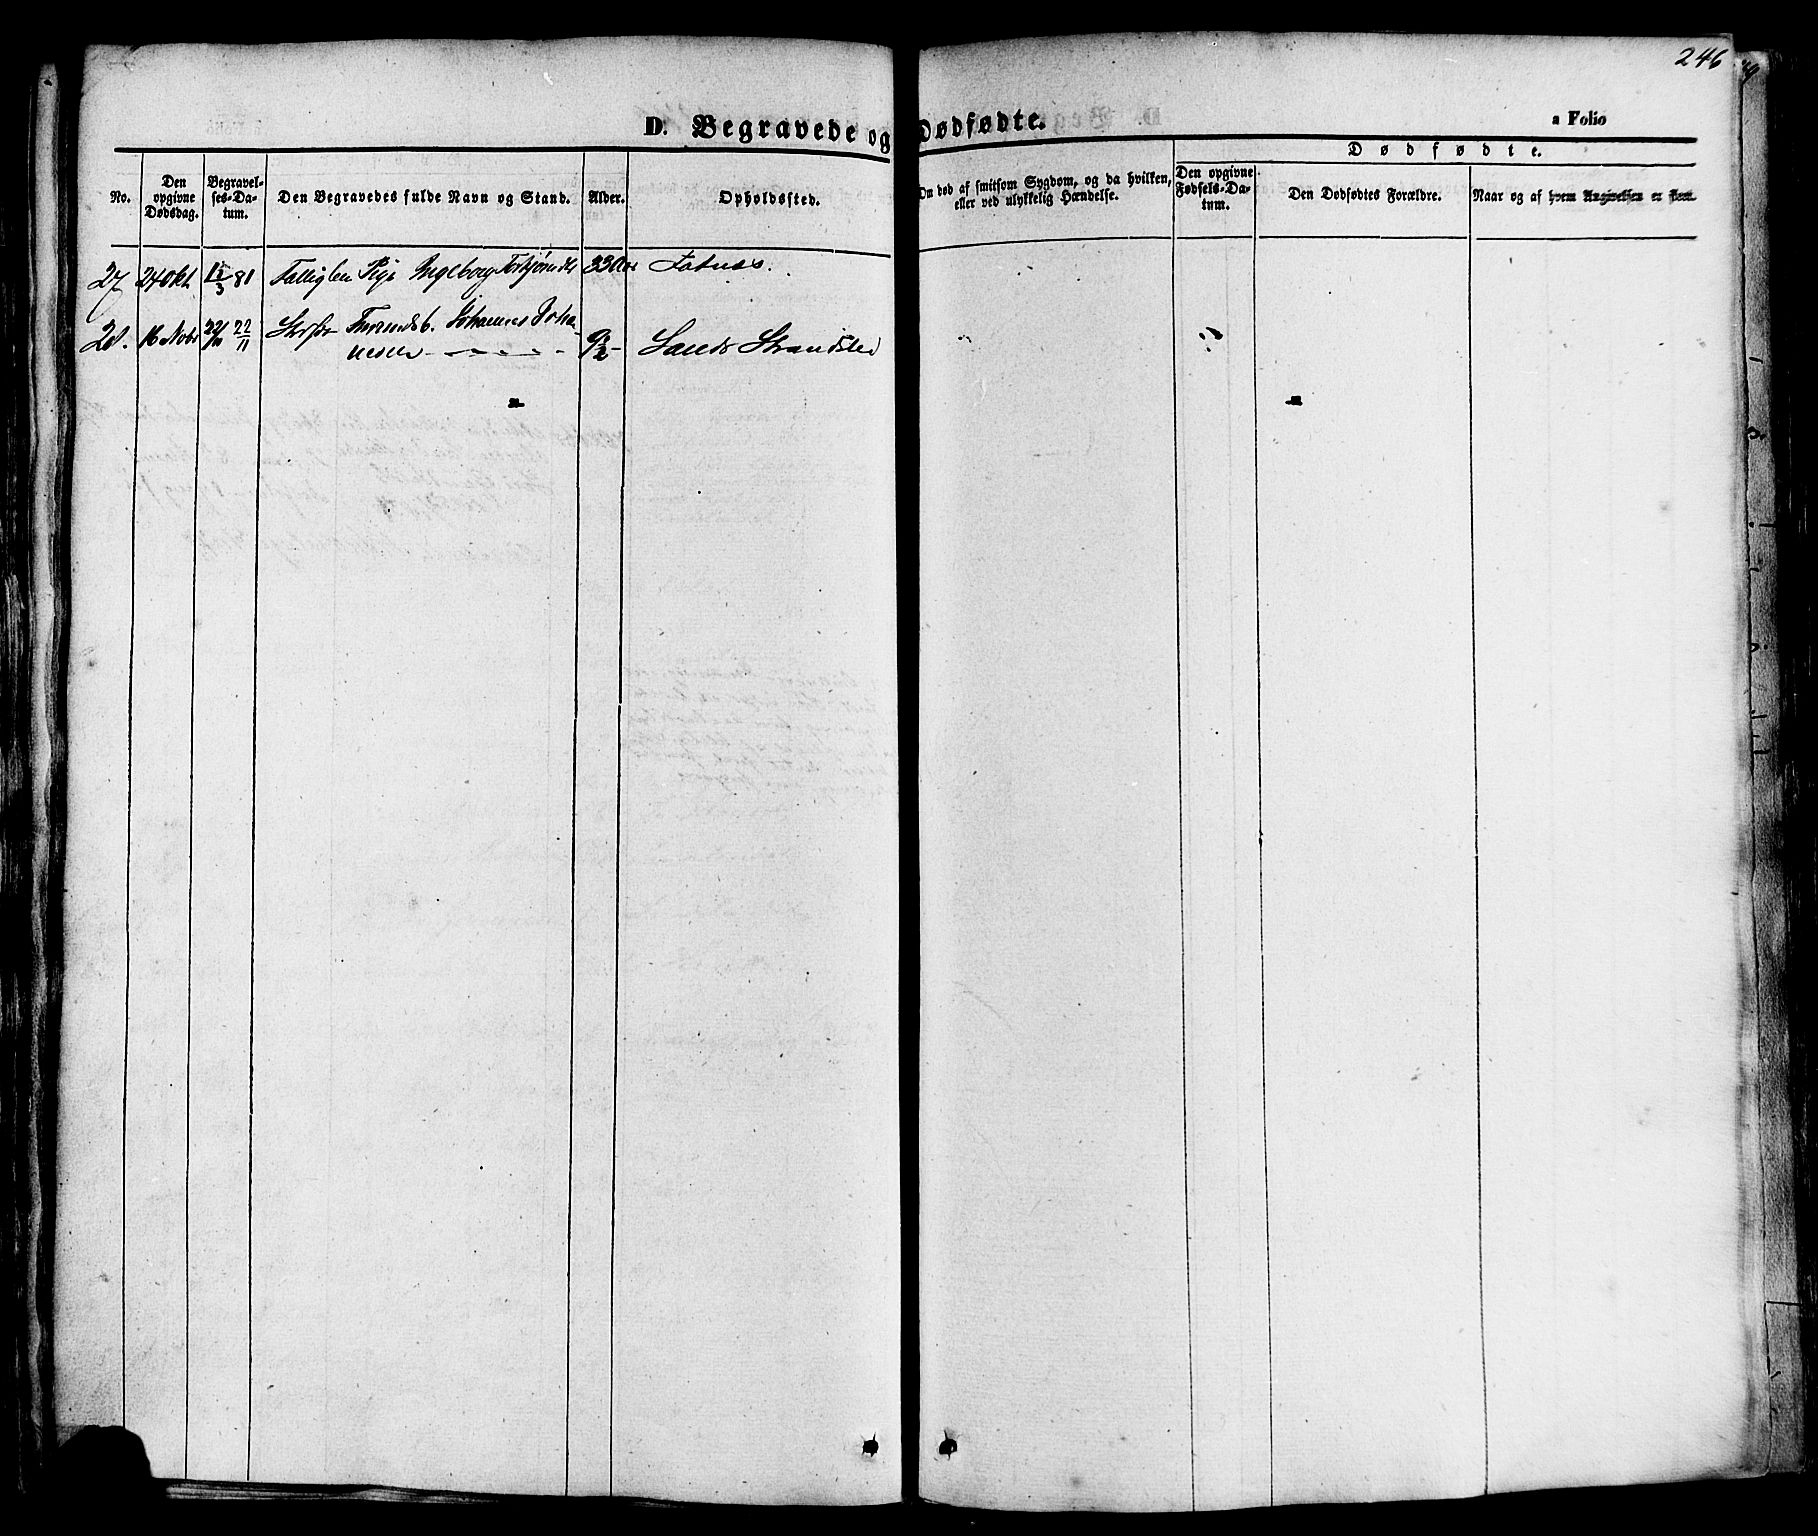 246
D. Begravede og Dødfødte.
a Folio
No.
Den opgivne Dødsdag.
Begravelses-Datum.
Den Begravedes fulde Navn og Stand.
Alder.
Opholdssted.
Om død af smitsom Sygdom, og da hvilken, eller ved ulykkelig Hændelse.
Dødfødte.
Den opgivne Fødsels-Datum.
Den Dødfødtes Forældre.
Naar og af hvem Angivelsen er
27 24 Okt 3 81 Pige Ingeborg 33 Aar
28. 16 Novbr 22/11 22/11 Johannes Joha-
nesen 9½ Sands Strandsted